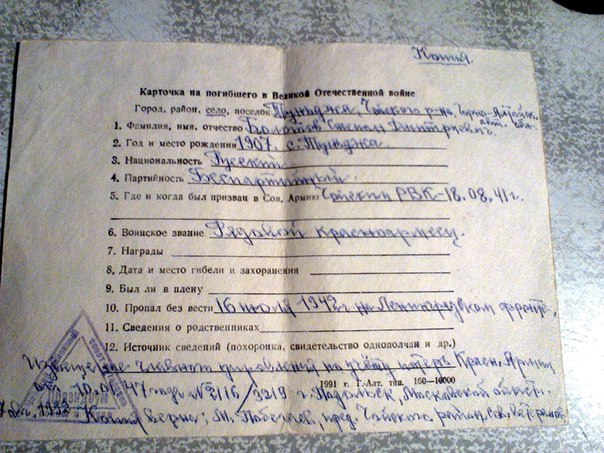 Копия.
Карточка на погибшего в Великой Отечественной войне
Город, район, село, поселок Тунжа, Чойского р-на, Горно-Алтайск.
авт. обл.
1. Фамилия, имя, отчество Болотов Степан Дмитриевич
2. Год и место рождения 1907. с. Тунжа.
3. Национальность Русский
4. Партийность Беспартийный
5. Где и когда был призван в Сов. Армию Чойским РВК - 18.08.41 г.
6. Воинское звание Рядовой красноармеец.
7. Награды
8. Дата и место гибели и захоронения
9. Был ли в плену
10. Пропал без вести 16 июля 1942 г на Ленинградском фронте,
11. Сведения о родственниках
12. Источник сведений (похоронка, свидетельство однополчан и др.)
Извещение главного управления по учёту потерь Красн. Армии
1991 г. Г.-Алт. тип. 160—10000
от 10. 47 года № 2116/ г. Подольск, Московской област.
Копия верна: пред. Чойского район.